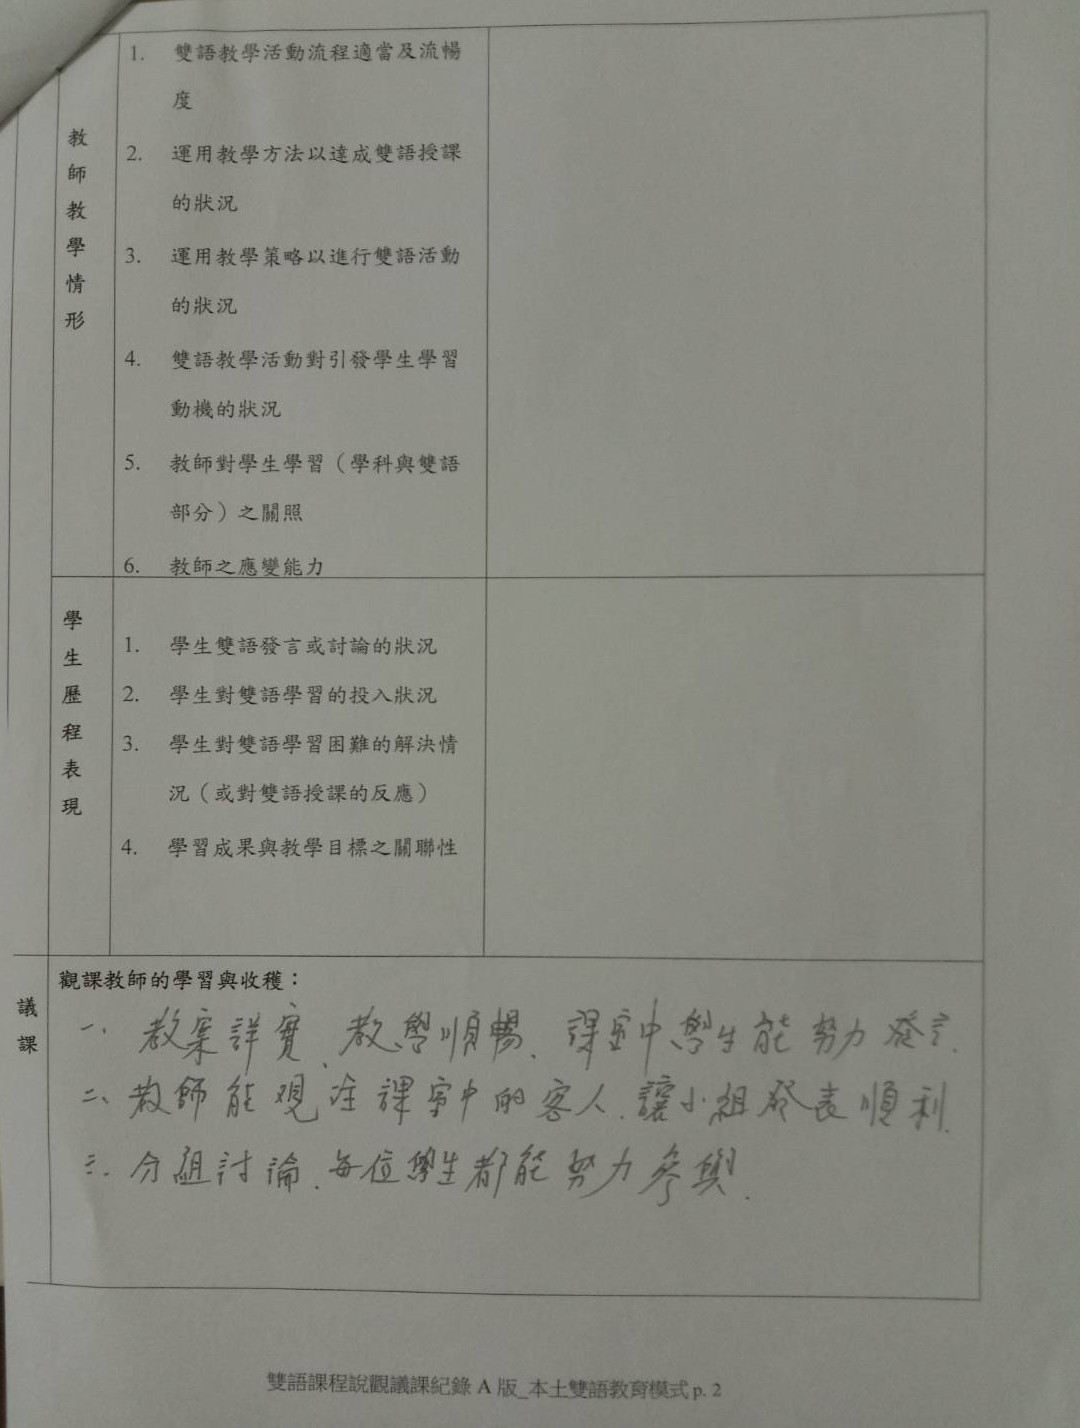 教師教學情形
1. 雙語教學活動流程適當及流暢
度
2. 運用教學方法以達成雙語授課
的狀況
3. 運用教學策略以進行雙語活動
的狀況
4. 雙語教學活動對引發學生學習
動機的狀況
5. 教師對學生學習（學科與雙語
部分）之關照
6. 教師之應變能力
學生歷程表現
1. 學生雙語發言或討論的狀況
2. 學生對雙語學習的投入狀況
3. 學生對雙語學習困難的解決情
況（或對雙語授課的反應）
4. 學習成果與教學目標之關聯性
議課
觀課教師的學習與收穫：
一、教案詳實、教學順暢、課室中學生能努力發言.
二、教師能現 課室中的客人、讓小組發表順利.
三、分組討論、每位學生都能努力參與.
雙語課程說觀議課紀錄 A 版_本土雙語教育模式 p. 2